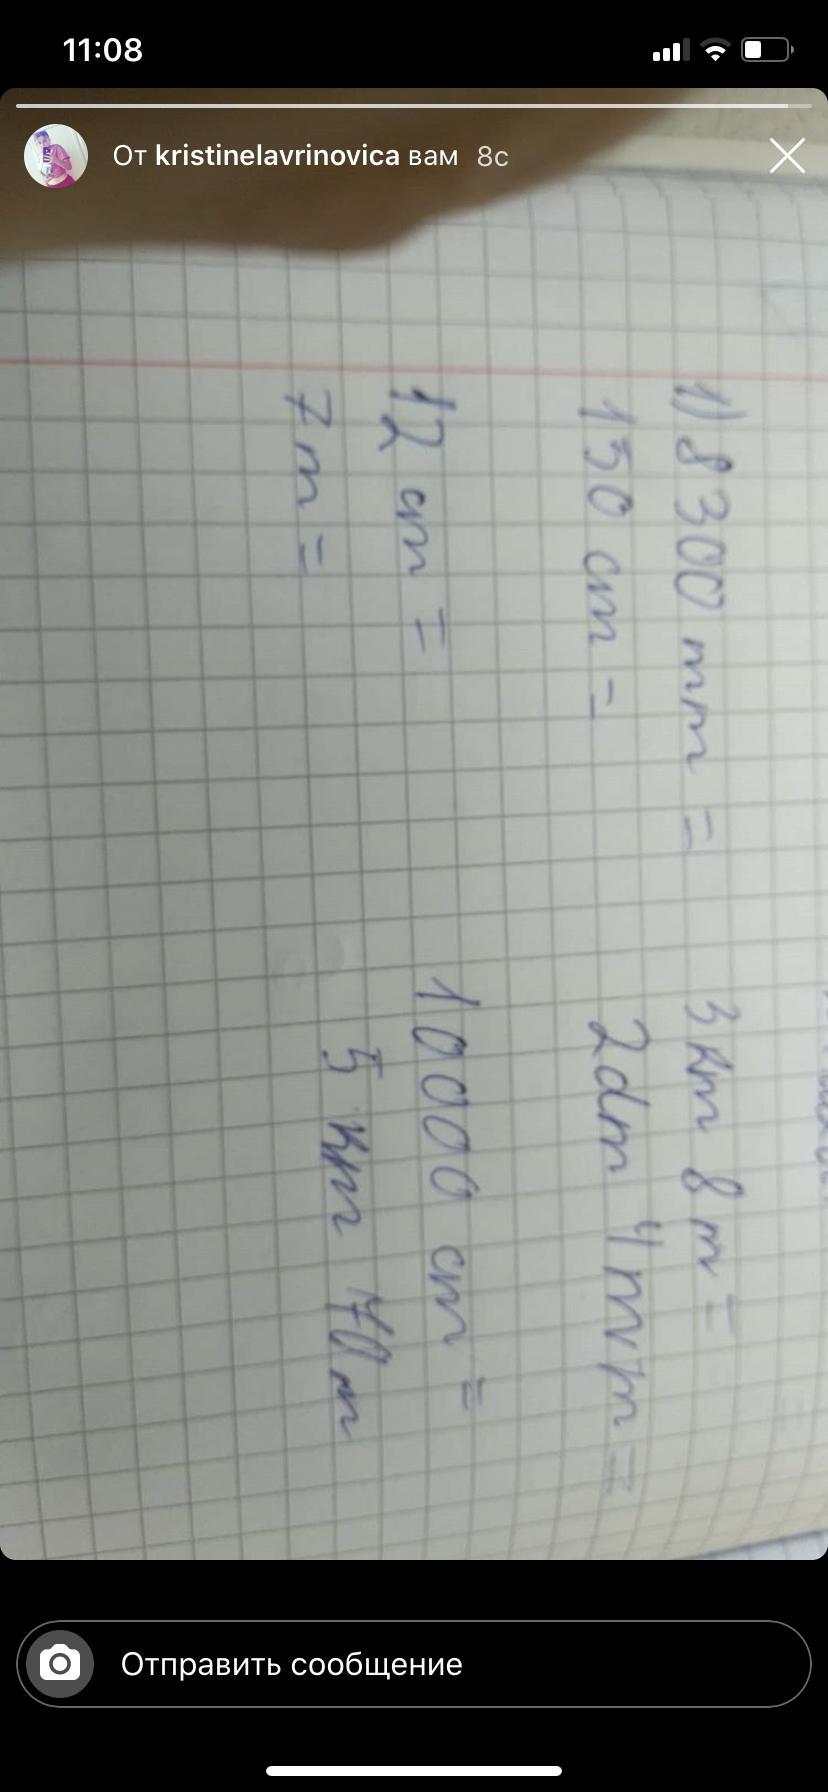 11:08
От kristinelavrinovica вам 8с
1) 8300 mm = 3 km 8 m =
150 cm = 2 dm 4 mm =
12 cm = 10000 cm =
7 m = 5 km 70 m
Отправить сообщение